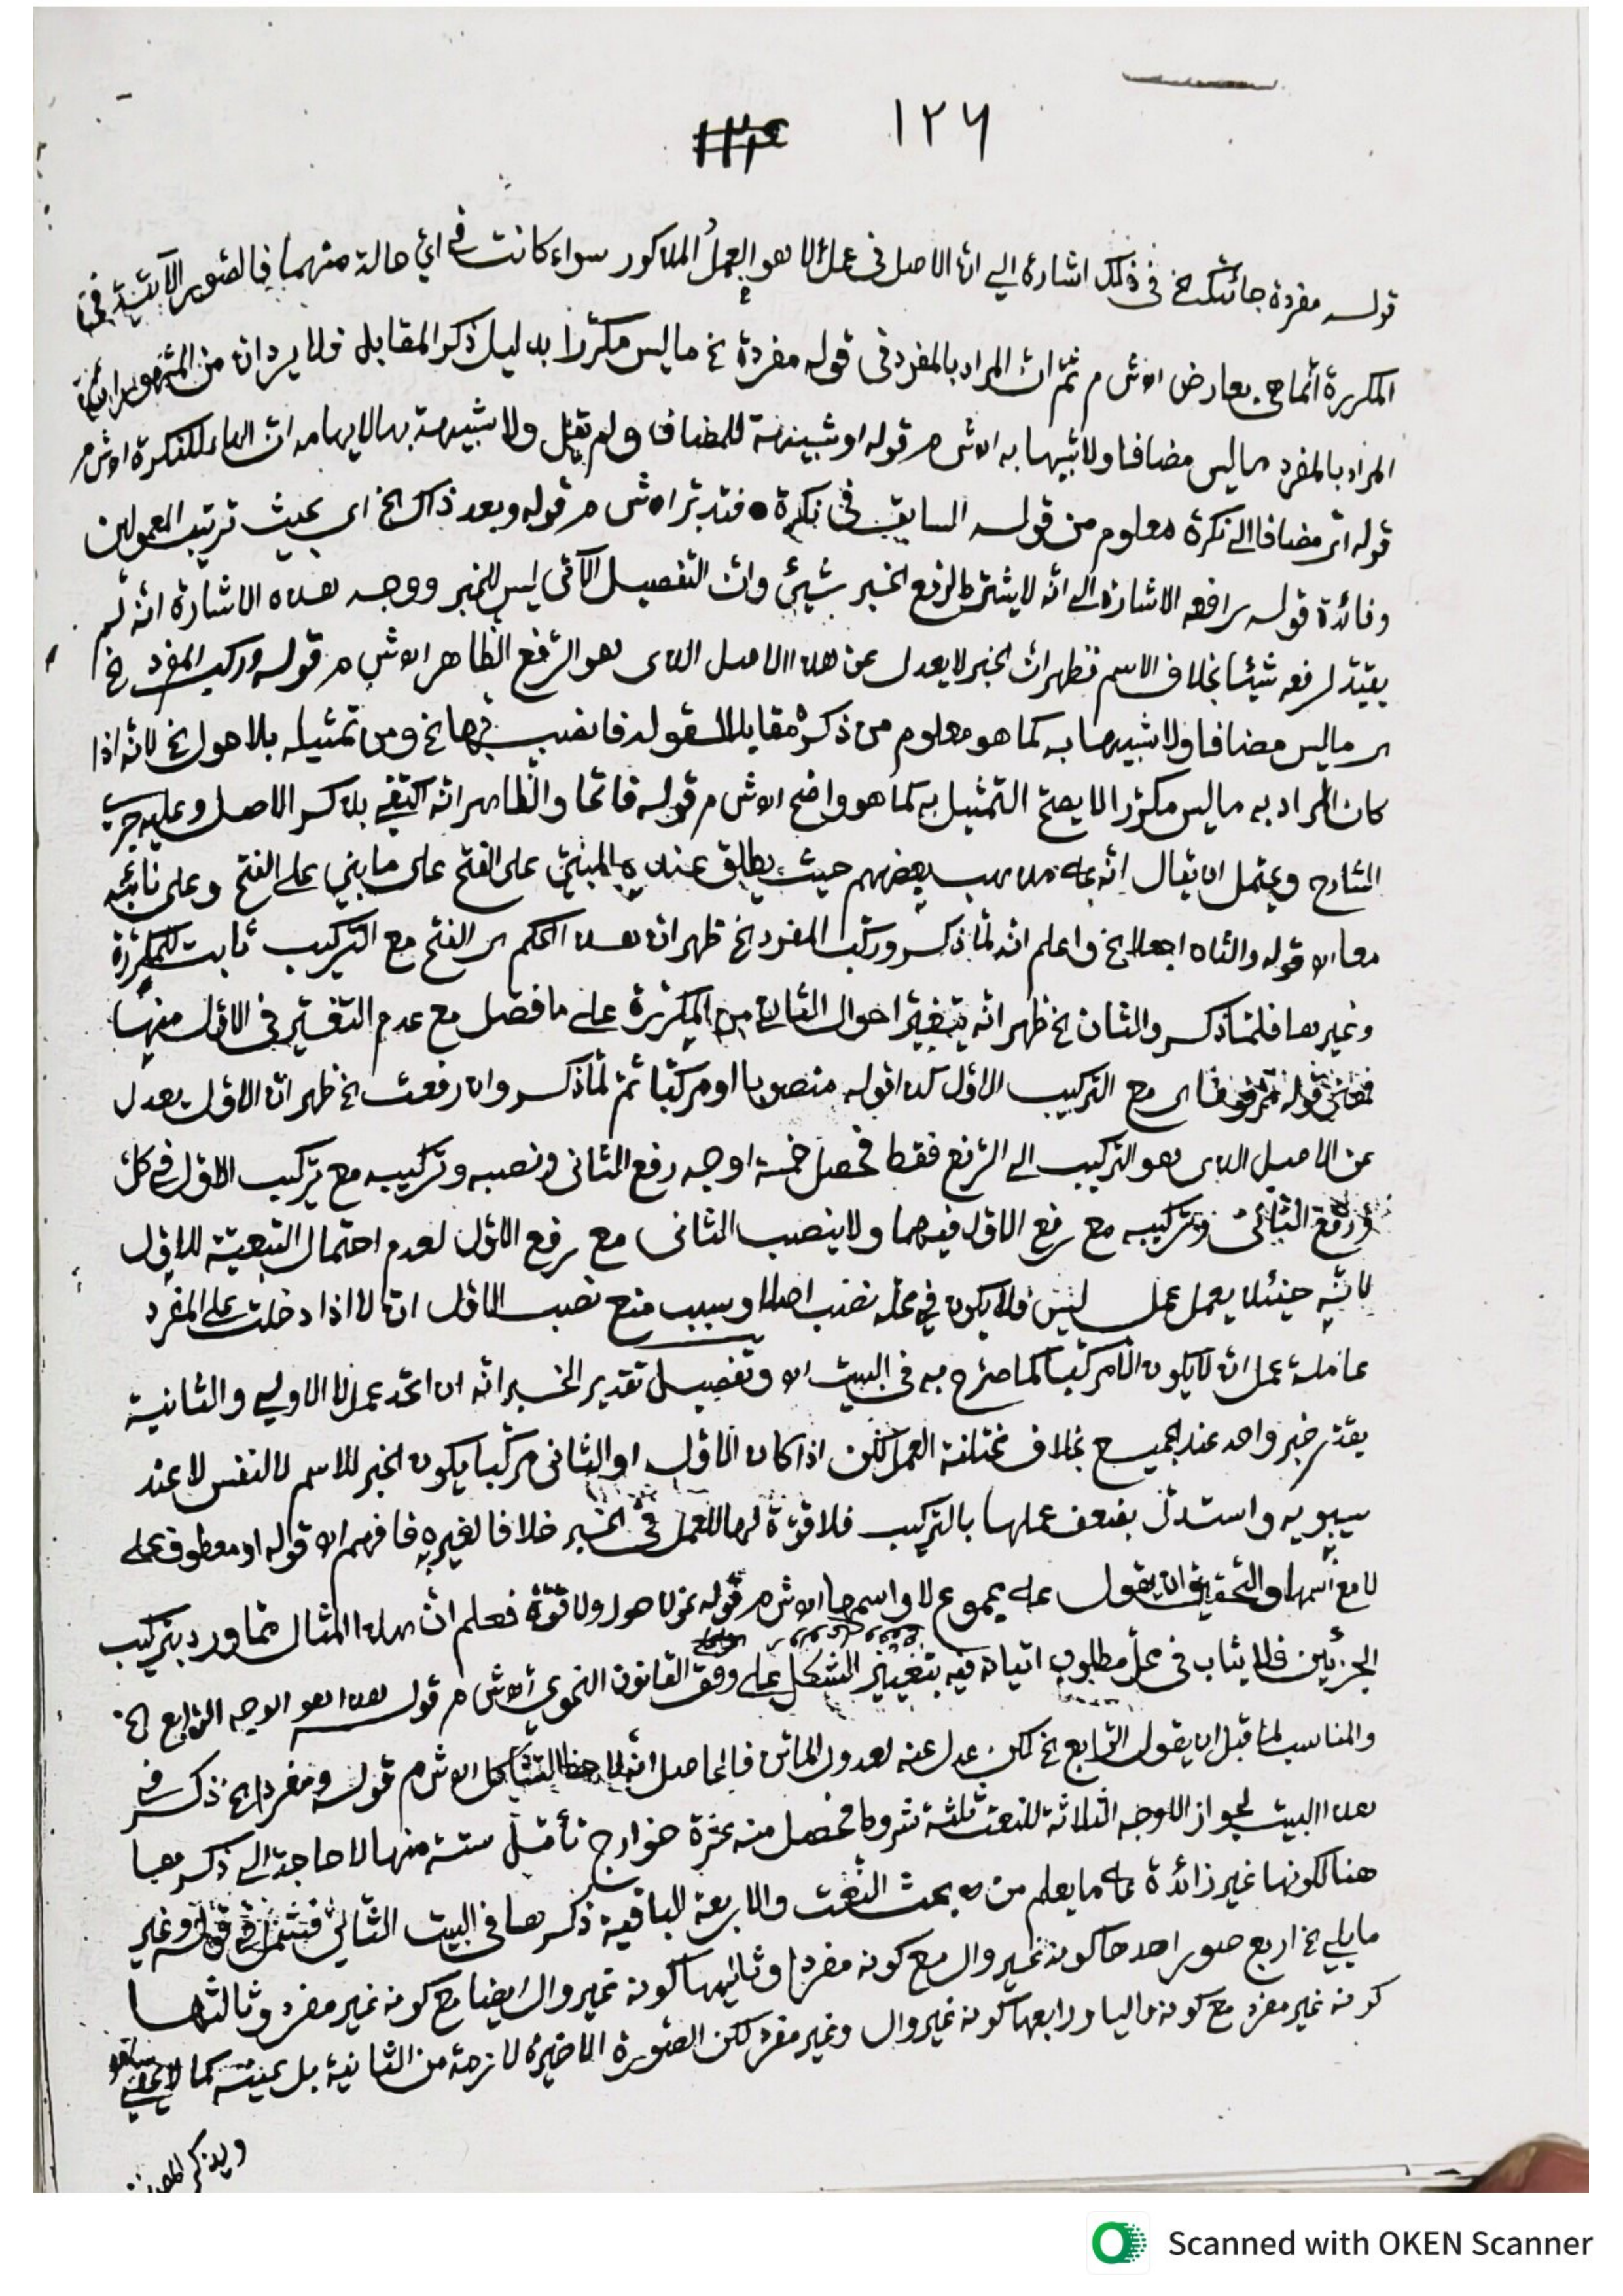 ١٢٦
قوله مفردة جائتك الخ في ذلك اشارة الي ان الاصل في عمل لا هو العمل المذكور سواء كانت في اي حالة منهما فالصور الآتية في
المكررة انما هي بعارض اه ش م ثم ان المراد بالمفرد في قوله مفردة الخ ما ليس مكررا بدليل ذكر المقابل فلا يرد ان من
المراد بالمفرد ما ليس مضافا ولا شبيها به اه ش م قوله او شبيهة للمضاف ولم يقل ولا شبيهة بها لايهامه ان الهاء للنكرة اه ش م
قوله اي مضافا الي نكرة معلوم من قوله السابق في نكرة فتدبر اه ش م قوله وبعد ذاك الخ اي بحيث ترتيب المعمولين
وفائدة قوله رافعه الاشارة الي انه لا يشترط لرفع الخبر شيئ وان التفصيل الآتي ليس للخبر ووجه هذه الاشارة انه لم
يقيد لرفعه شيئا بخلاف الاسم فظهر ان الخبر لا يعدل عن هذا الاصل الذي هو الرفع الظاهر اه ش م قوله وركب المفرد الخ
اي ما ليس مضافا ولا شبيها به كما هو معلوم من ذكره مقابلا لقوله فانصب بها الخ ومن تمثيله بلا حول الخ لانه اذا
كان المراد به ما ليس مكررا لا يصح التمثيل به كما هو واضح اه ش م قوله فاتحا والظاهر انه اكتفي بذكر الاصل وعليه جري
الشارح ويحتمل ان يقال انه علي مذهب بعضهم حيث يطلق عنده المبني على الفتح على ما بني علي الفتح وعلى نائبه
معا اه قوله والثان اجعلا الخ واعلم انه لما ذكر وركب المفرد الخ ظهر ان هذا الحكم اي الفتح مع التركيب ثابت للمكررة
وغيرها فلما ذكر والثان الخ ظهر انه يتغير احوال الثاني من المكررة علي ما فصل مع عدم التغير في الاول منها
فمعنى قوله مرفوعا اي مع التركيب الاول كذا قوله منصوبا او مركبا ثم لما ذكر وان رفعت الخ ظهر ان الاول يعدل
عن الاصل الذي هو التركيب الي الرفع فقط فحصل خمسة اوجه رفع الثاني ونصبه وتركيبه مع تركيب الاول في كل
ورفع الثاني وتركيبه مع رفع الاول فيهما ولا ينصب الثاني مع رفع الاول لعدم احتمال التبعية للاول
لانه حينئذ يعمل عمل ليس فلا يكون في محله نصب اصلا وسبب منع نصب الاول ان لا اذا دخلت علي المفرد
عاملة عمل ان لا يكون الا مركبا كما صرح به في البيت اه وتفصيل تقدير الخبر انه ان اتحد عمل لا الاولي والثانية
يقدر خبر واحد عند الجميع بخلاف مختلفة العمل لكن اذا كان الاول او الثاني مركبا يكون الخبر للاسم لا لنفس لا عند
سيبويه واستدل بضعف عملها بالتركيب فلا قوة لها للعمل في الخبر خلافا لغيره فافهم اه قوله او معطوف علي
لا مع اسمها والتحقيق ان يقول علي مجموع لا واسمها اه ش م قوله نحو لا حول ولا قوة فعلم ان هذا المثال مما ورد بتركيب
الجزئين فلا يثاب في محل مطلوب اتيانه فيه بتغيير الشكل علي وفق القانون النحوي اه ش م قوله هذا هو الوجه الرابع الخ
والمناسب لما قبل ان يقول الرابع الخ لكن عدل عنه لعدول الماتن فالحاصل انه لاحظ التشاكل اه ش م قوله ومفردا الخ ذكر في
هذا البيت لجواز الاوجه الثلاثة للنعت ثلثة شروط فحصل منه عشرة خوارج تأمل ستة منها لا حاجة الي ذكرها
هنا لكونها غير زائدة علي ما يعلم من بحث النعت والاربعة الباقية ذكرها في البيت الثاني فتشمل قوله وغير
ما يلي الخ اربع صور احدها كونه غير وال مع كونه مفردا وثانيها كونه غير وال ايضا مع كونه غير مفرد وثالثها
كونه غير مفرد مع كونه واليا ورابعها كونه غير وال وغير مفرد لكن الصورة الاخيرة لازمة من الثانية بل عينه كما لا يخفي
ويذكر المصنف
Scanned with OKEN Scanner